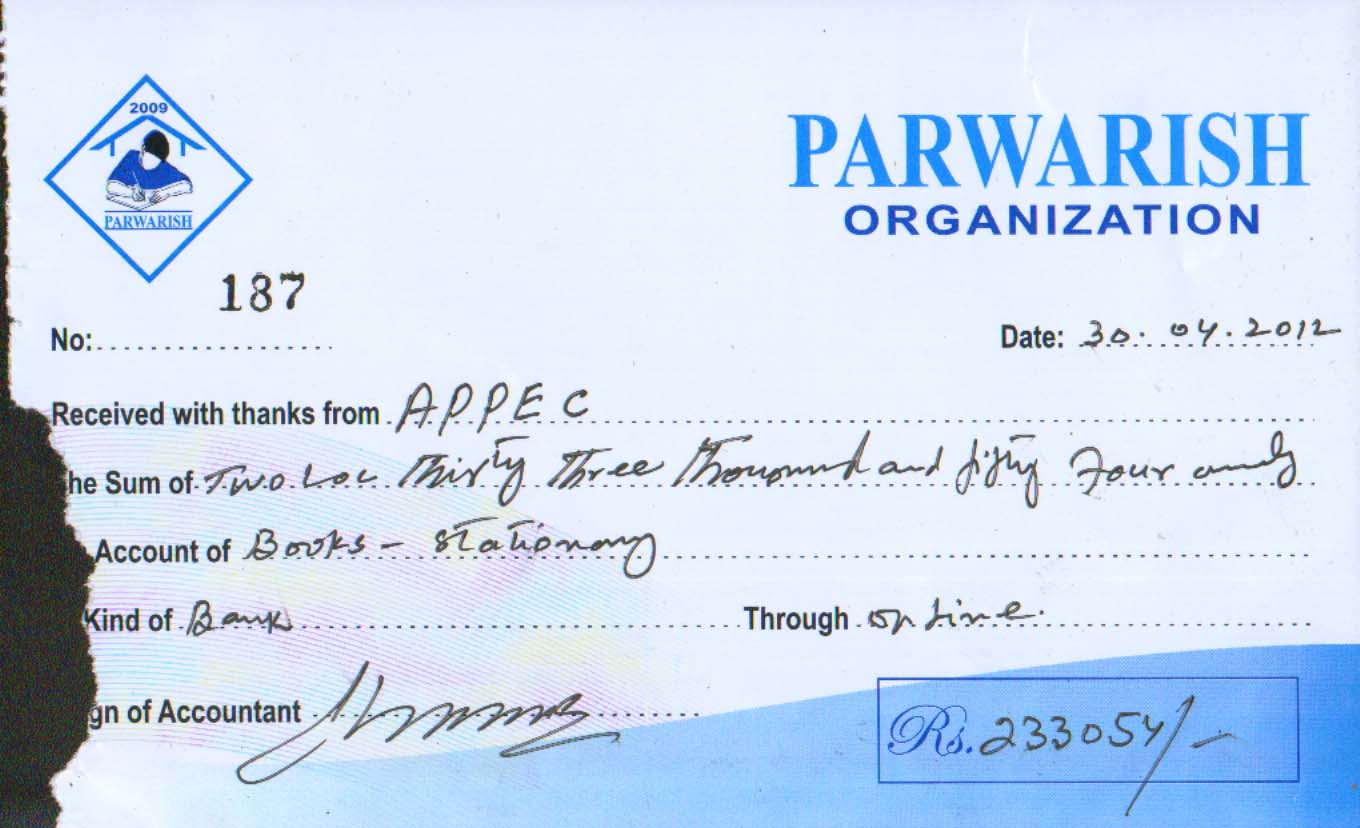 2009
PARWARISH
PARWARISH
ORGANIZATION
187
No:
Date: 30.04.2012
Received with thanks from APPEC
he Sum of Two Lac Thirty Three Thousand and fifty Four only
Account of Books - Stationary
Kind of Bank Through on Line.
gn of Accountant
Rs. 233054/-